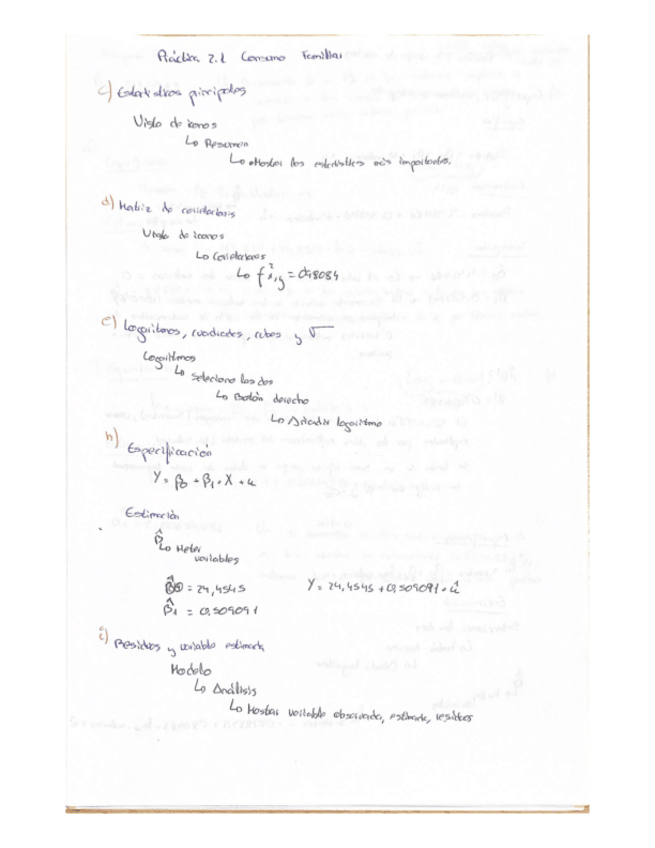 Práctica 2.1 Consumo Familiar
c) Estadísticos principales
Vista de iconos
↳ Resumen
↳ Mostrar los estadísticos más importantes.
d) Matriz de correlaciones
Vista de iconos
↳ Correlaciones
↳ f²x,y = 0,98084
e) Logaritmos, cuadrados, cubos y √
Logaritmos
↳ Selecciono los dos
↳ Botón derecho
↳ Añadir logaritmo
h) Especificación
Y = β0 + β1 · X + u
Estimación
β̂
↳ Meter
variables
β̂0 = 24,4545 Y = 24,4545 + 0,509091 · û
β̂1 = 0,509091
i) Residuos y variable estimada
Modelo
↳ Análisis
↳ Mostrar variable observada, estimada, residuos